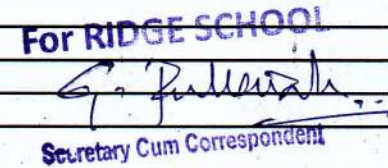 For RIDGE SCHOOL
Secretary Cum Correspondent